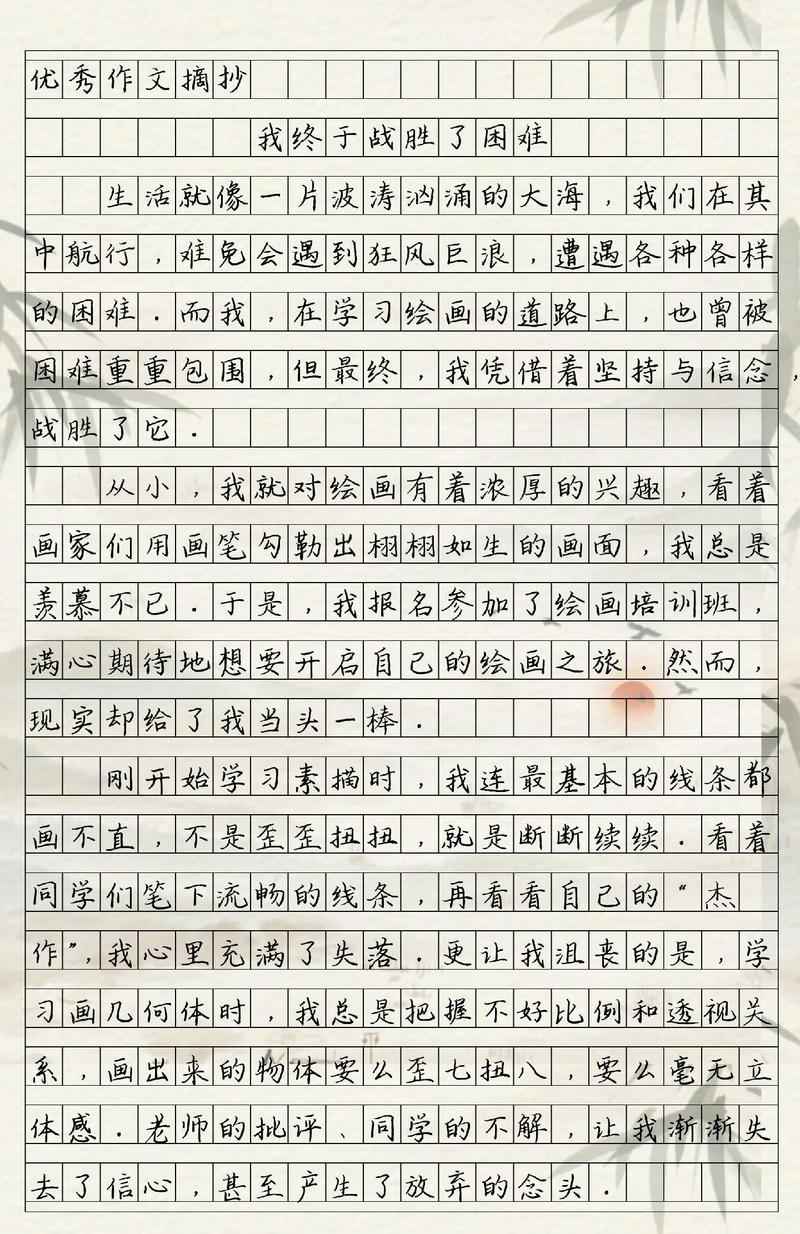 优秀作文摘抄
我终于战胜了困难
生活就像一片波涛汹涌的大海，我们在其
中航行，难免会遇到狂风巨浪，遭遇各种各样
的困难．而我，在学习绘画的道路上，也曾被
困难重重包围，但最终，我凭借着坚持与信念，
战胜了它．
从小，我就对绘画有着浓厚的兴趣，看着
画家们用画笔勾勒出栩栩如生的画面，我总是
羡慕不已．于是，我报名参加了绘画培训班，
满心期待地想要开启自己的绘画之旅．然而，
现实却给了我当头一棒．
刚开始学习素描时，我连最基本的线条都
画不直，不是歪歪扭扭，就是断断续续．看着
同学们笔下流畅的线条，再看看自己的“杰
作”，我心里充满了失落．更让我沮丧的是，学
习画几何体时，我总是把握不好比例和透视关
系，画出来的物体要么歪七扭八，要么毫无立
体感．老师的批评、同学的不解，让我渐渐失
去了信心，甚至产生了放弃的念头．